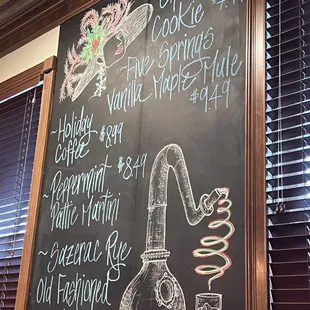 Cookie
~Five Springs
Vanilla Maple Mule
$949
~Holiday
Coffee $899
~Peppermint $849
Pattie Martini
~Sazerac Rye
Old Fashioned